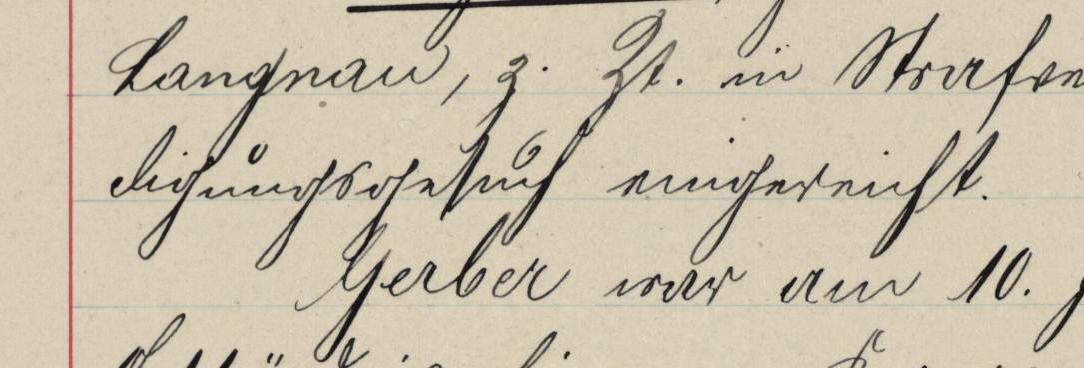 Langnau, z. Zt. in Strafve
digungsgesuch eingereicht.
Gerber war am 10.